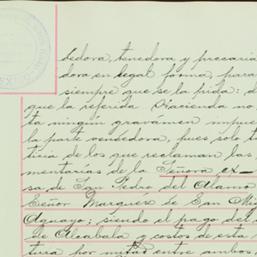 bedora, tenedora y precaria
dora en legal forma, para
siempre que se la pida: d
que la referida Hacienda no
ta ningún gravámen impue
la parte vendedora, pues solo t
ticia de los que reclaman las
mentarias de la Señora ex-
sa de San Pedro del Alamo
Señor Marques de San Mi
Aguayo; siendo el pago del
de Alcabala y costos de esta
tura por mitad entre ambos,